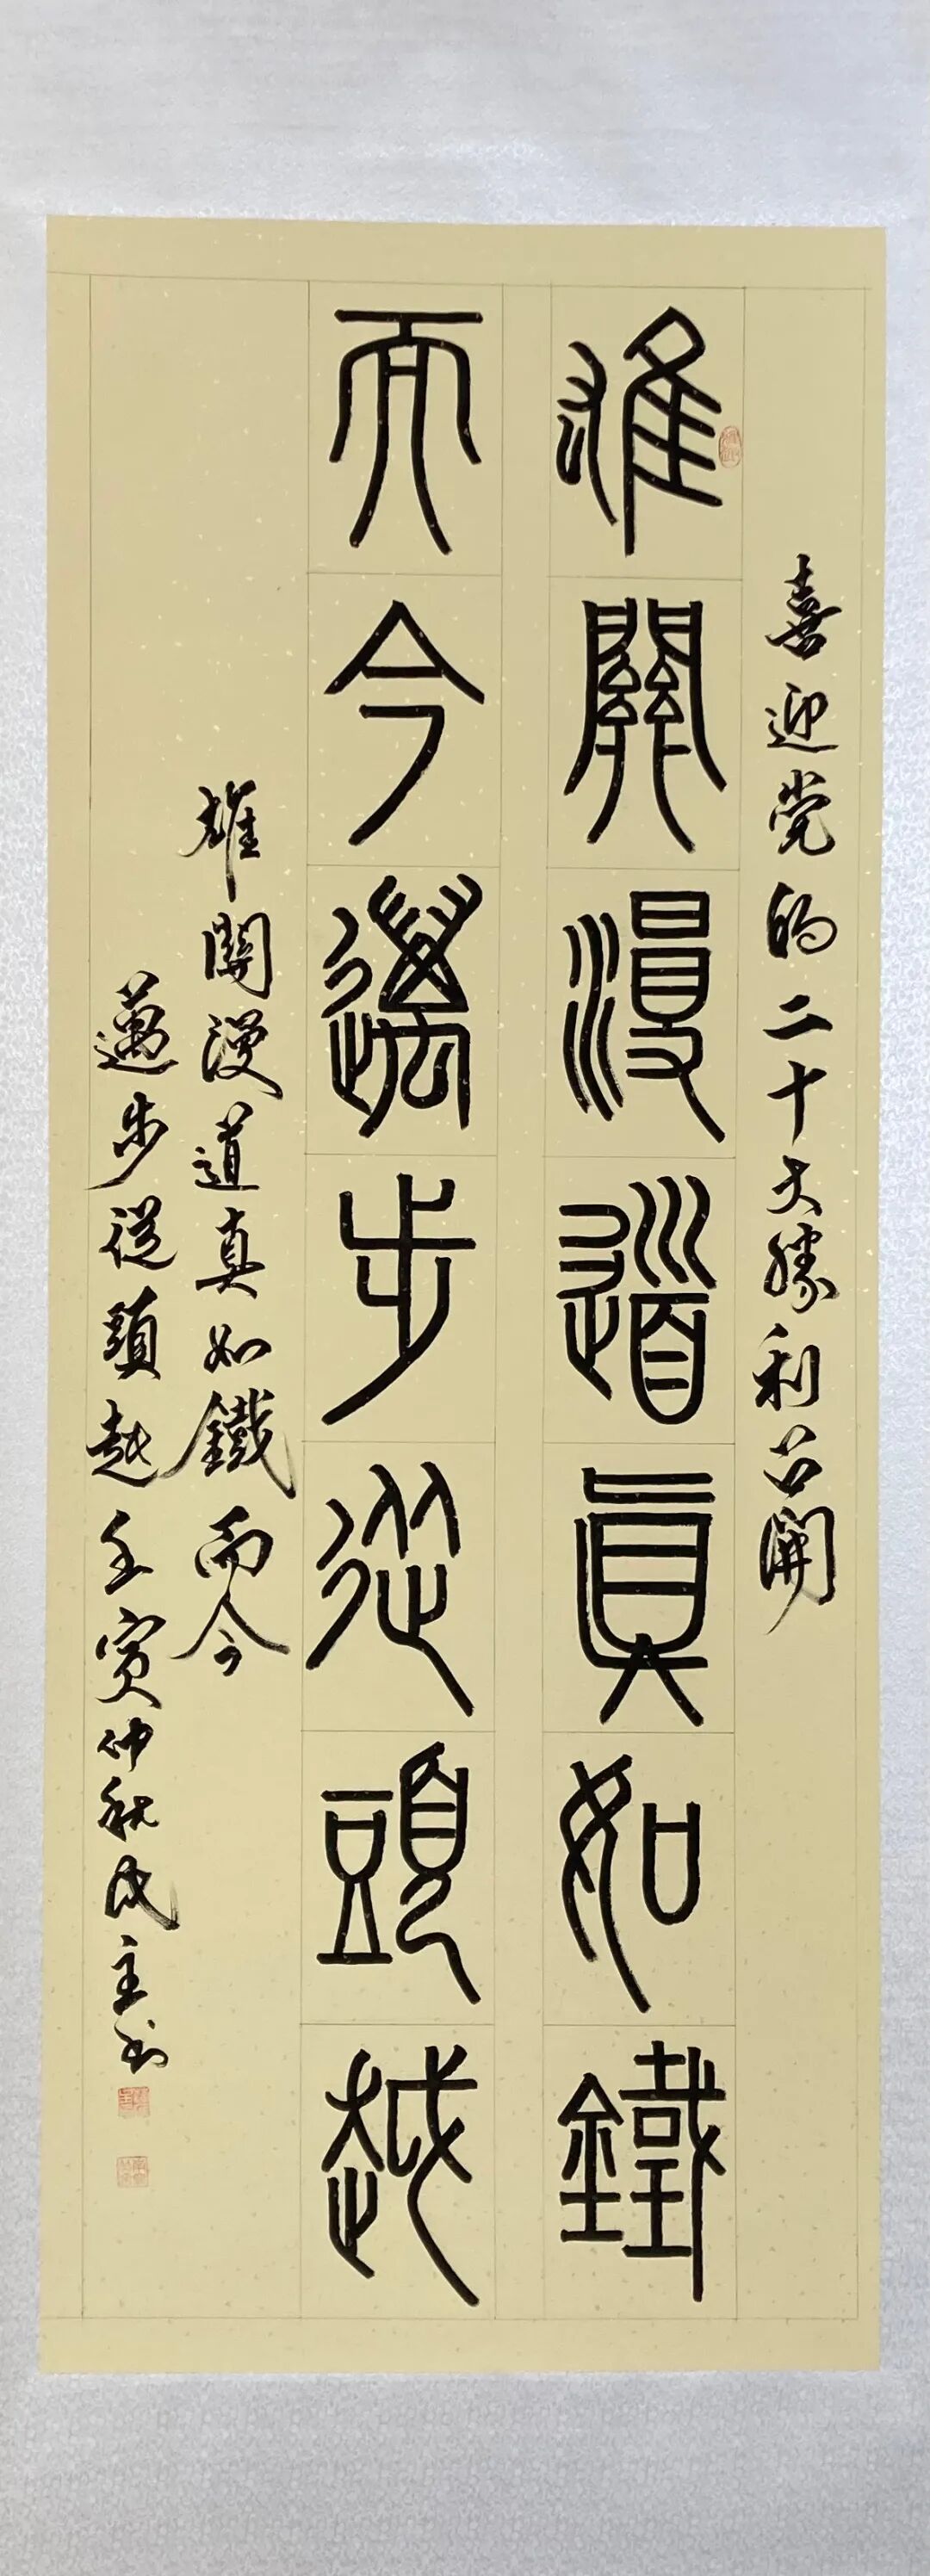 喜迎党的二十大勝利召開
雄關漫道真如鐵
而今邁步從頭越
雄關漫道真如鐵而今
邁步從頭越壬寅仲秋成主书